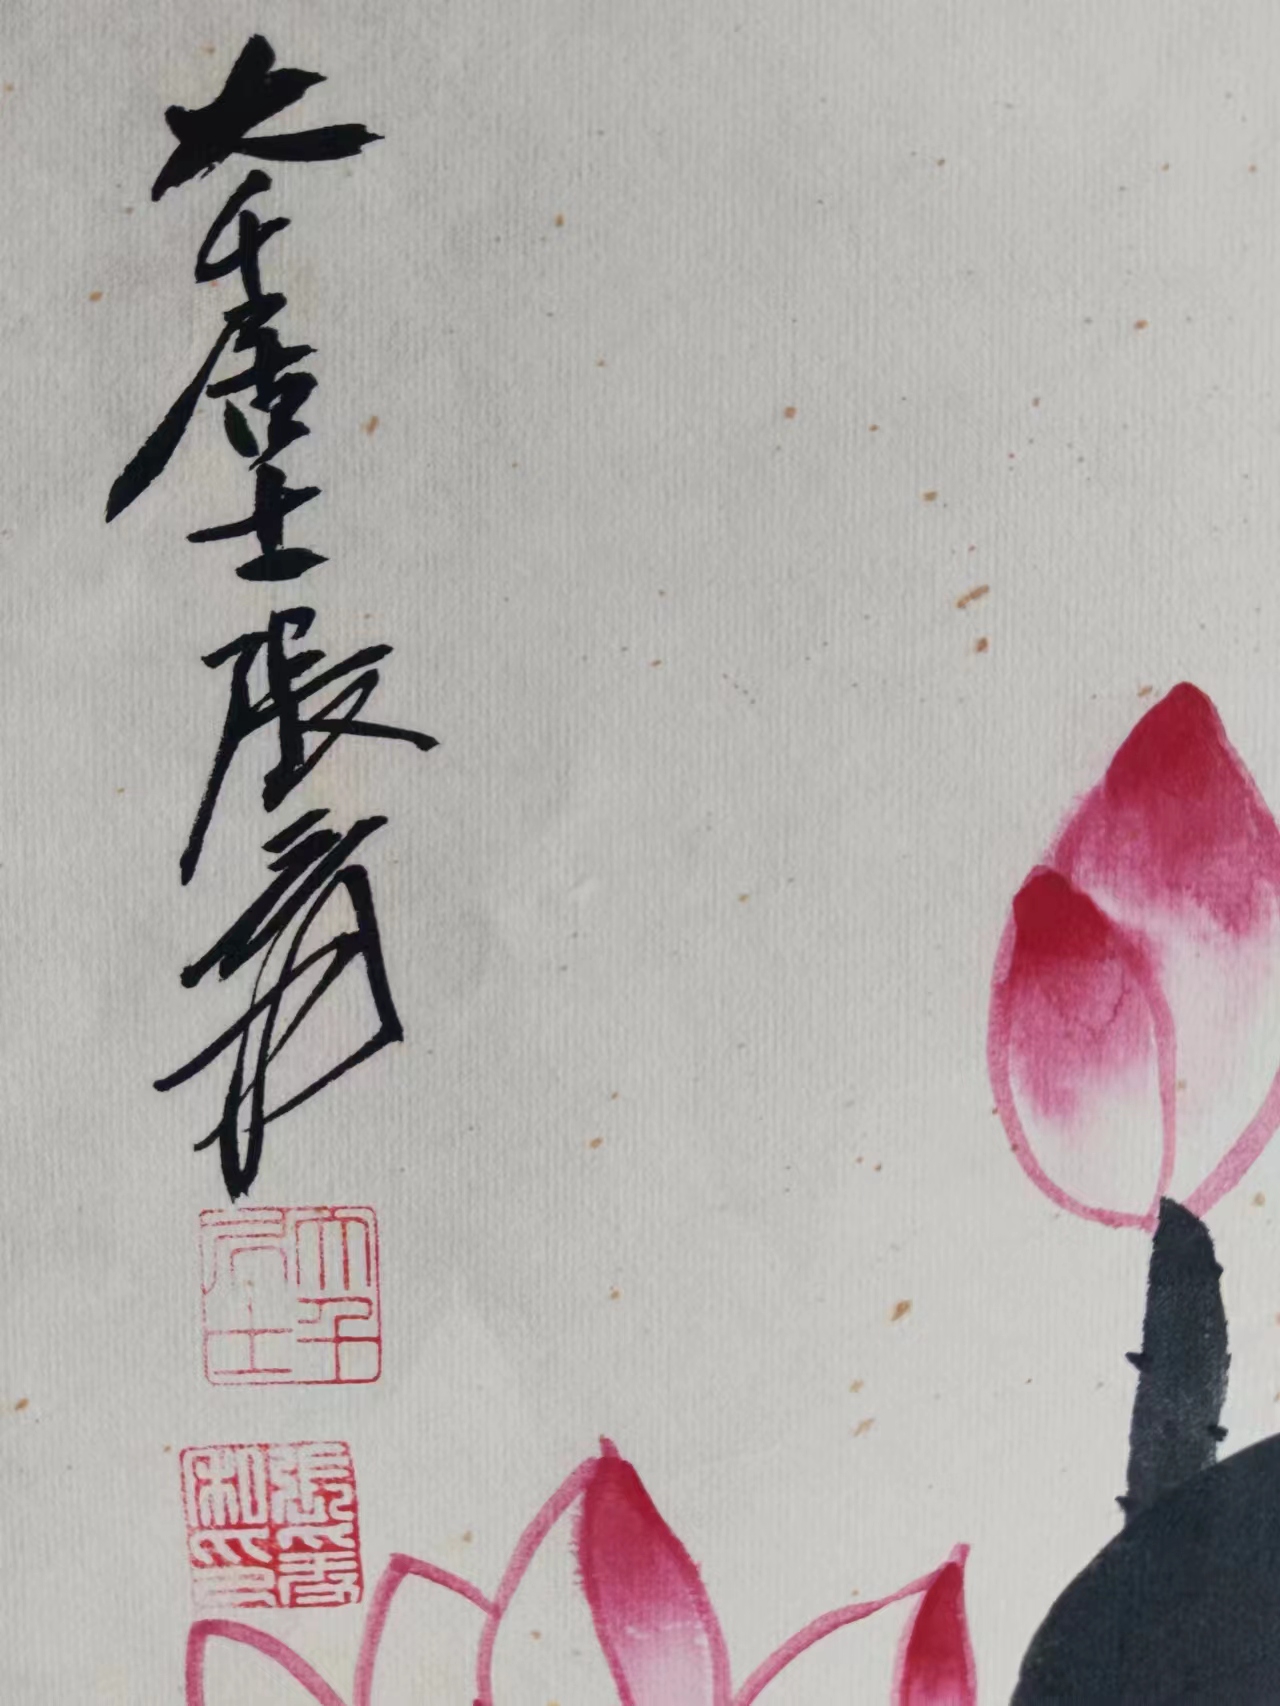 大千居士張爰
大千居士
張季私印